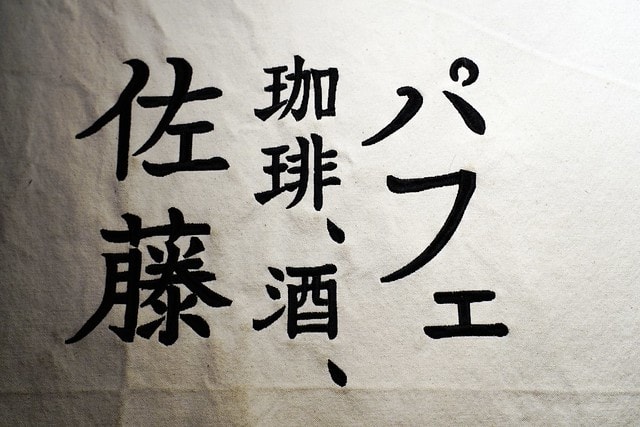 パフェ
珈琲、酒、
佐藤